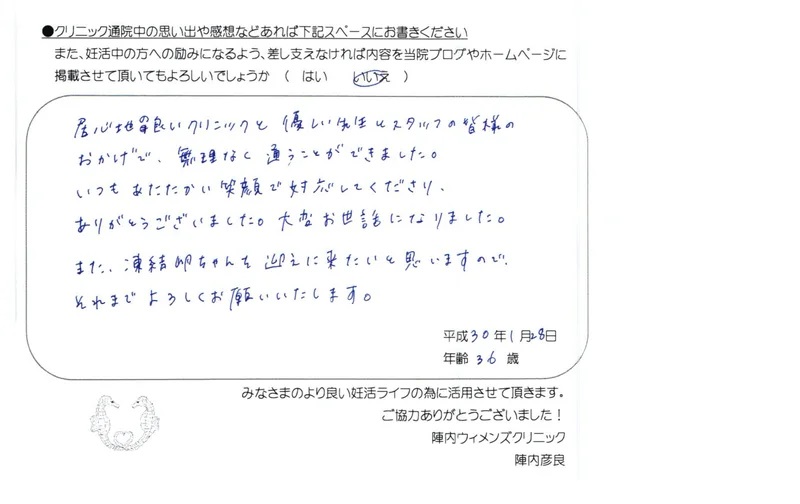 ●クリニック通院中の思い出や感想などあれば下記スペースにお書きください
また、妊活中の方への励みになるよう、差し支えなければ内容を当院ブログやホームページに
掲載させて頂いてもよろしいでしょうか （ はい いいえ ）
居心地の良いクリニックと 優しい先生とスタッフの皆様の
おかげで、無理なく 通うことができました。
いつも あたたかい笑顔で対応してくださり、
ありがとうございました。大変お世話になりました。
また、凍結卵ちゃんを 迎えに来たいと思いますので、
それまで よろしくお願いいたします。
平成30年1月28日
年齢 36 歳
みなさまのより良い妊活ライフの為に活用させて頂きます。
ご協力ありがとうございました！
陣内ウィメンズクリニック
陣内彦良